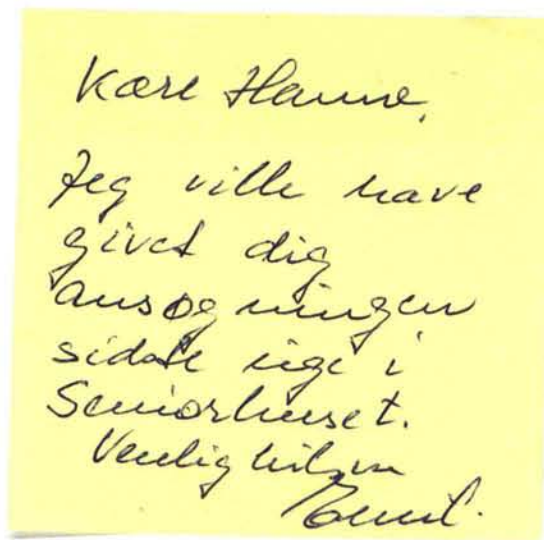 Kære Hanne,
Jeg ville have
givet dig
ansøgningen
sidste uge i
Seniorhuset.
Venlig hilsen